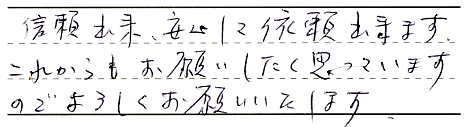 信頼出来、安心して依頼出来ます。
これからもお願いしたく思っています
のでよろしくお願いいたします。